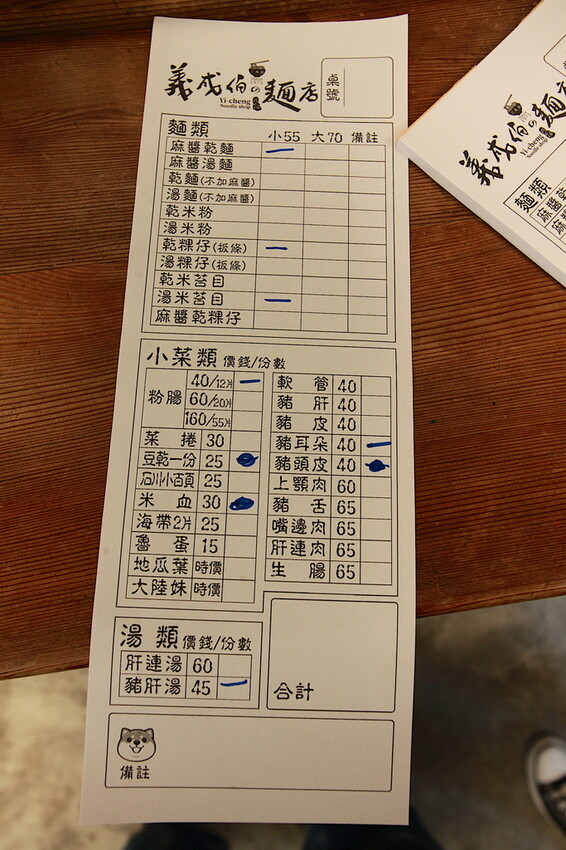 義成伯の麵店
Yi-cheng
Noodle shop
桌號
麵類 小55 大70 備註
麻醬乾麵 一
麻醬湯麵
乾麵(不加麻醬)
湯麵(不加麻醬)
乾米粉
湯米粉
乾粿仔(粄條) 一
湯粿仔(粄條)
乾米苔目
湯米苔目 一
麻醬乾粿仔
小菜類 價錢/份數
粉腸 40/12片 一
60/20片
160/55片
菜捲 30
豆乾一份 25
小百頁 25
米血 30
海帶2片 25
魯蛋 15
地瓜葉 時價
大陸妹 時價
軟管 40
豬肝 40
豬皮 40
豬耳朵 40 一
豬頭皮 40
上顎肉 60
豬舌 65
嘴邊肉 65
肝連肉 65
生腸 65
湯類 價錢/份數
肝連湯 60
豬肝湯 45 一
合計
備註
義成伯の
Yi-cheng
Noodle shop
麵類
麻醬乾
麻